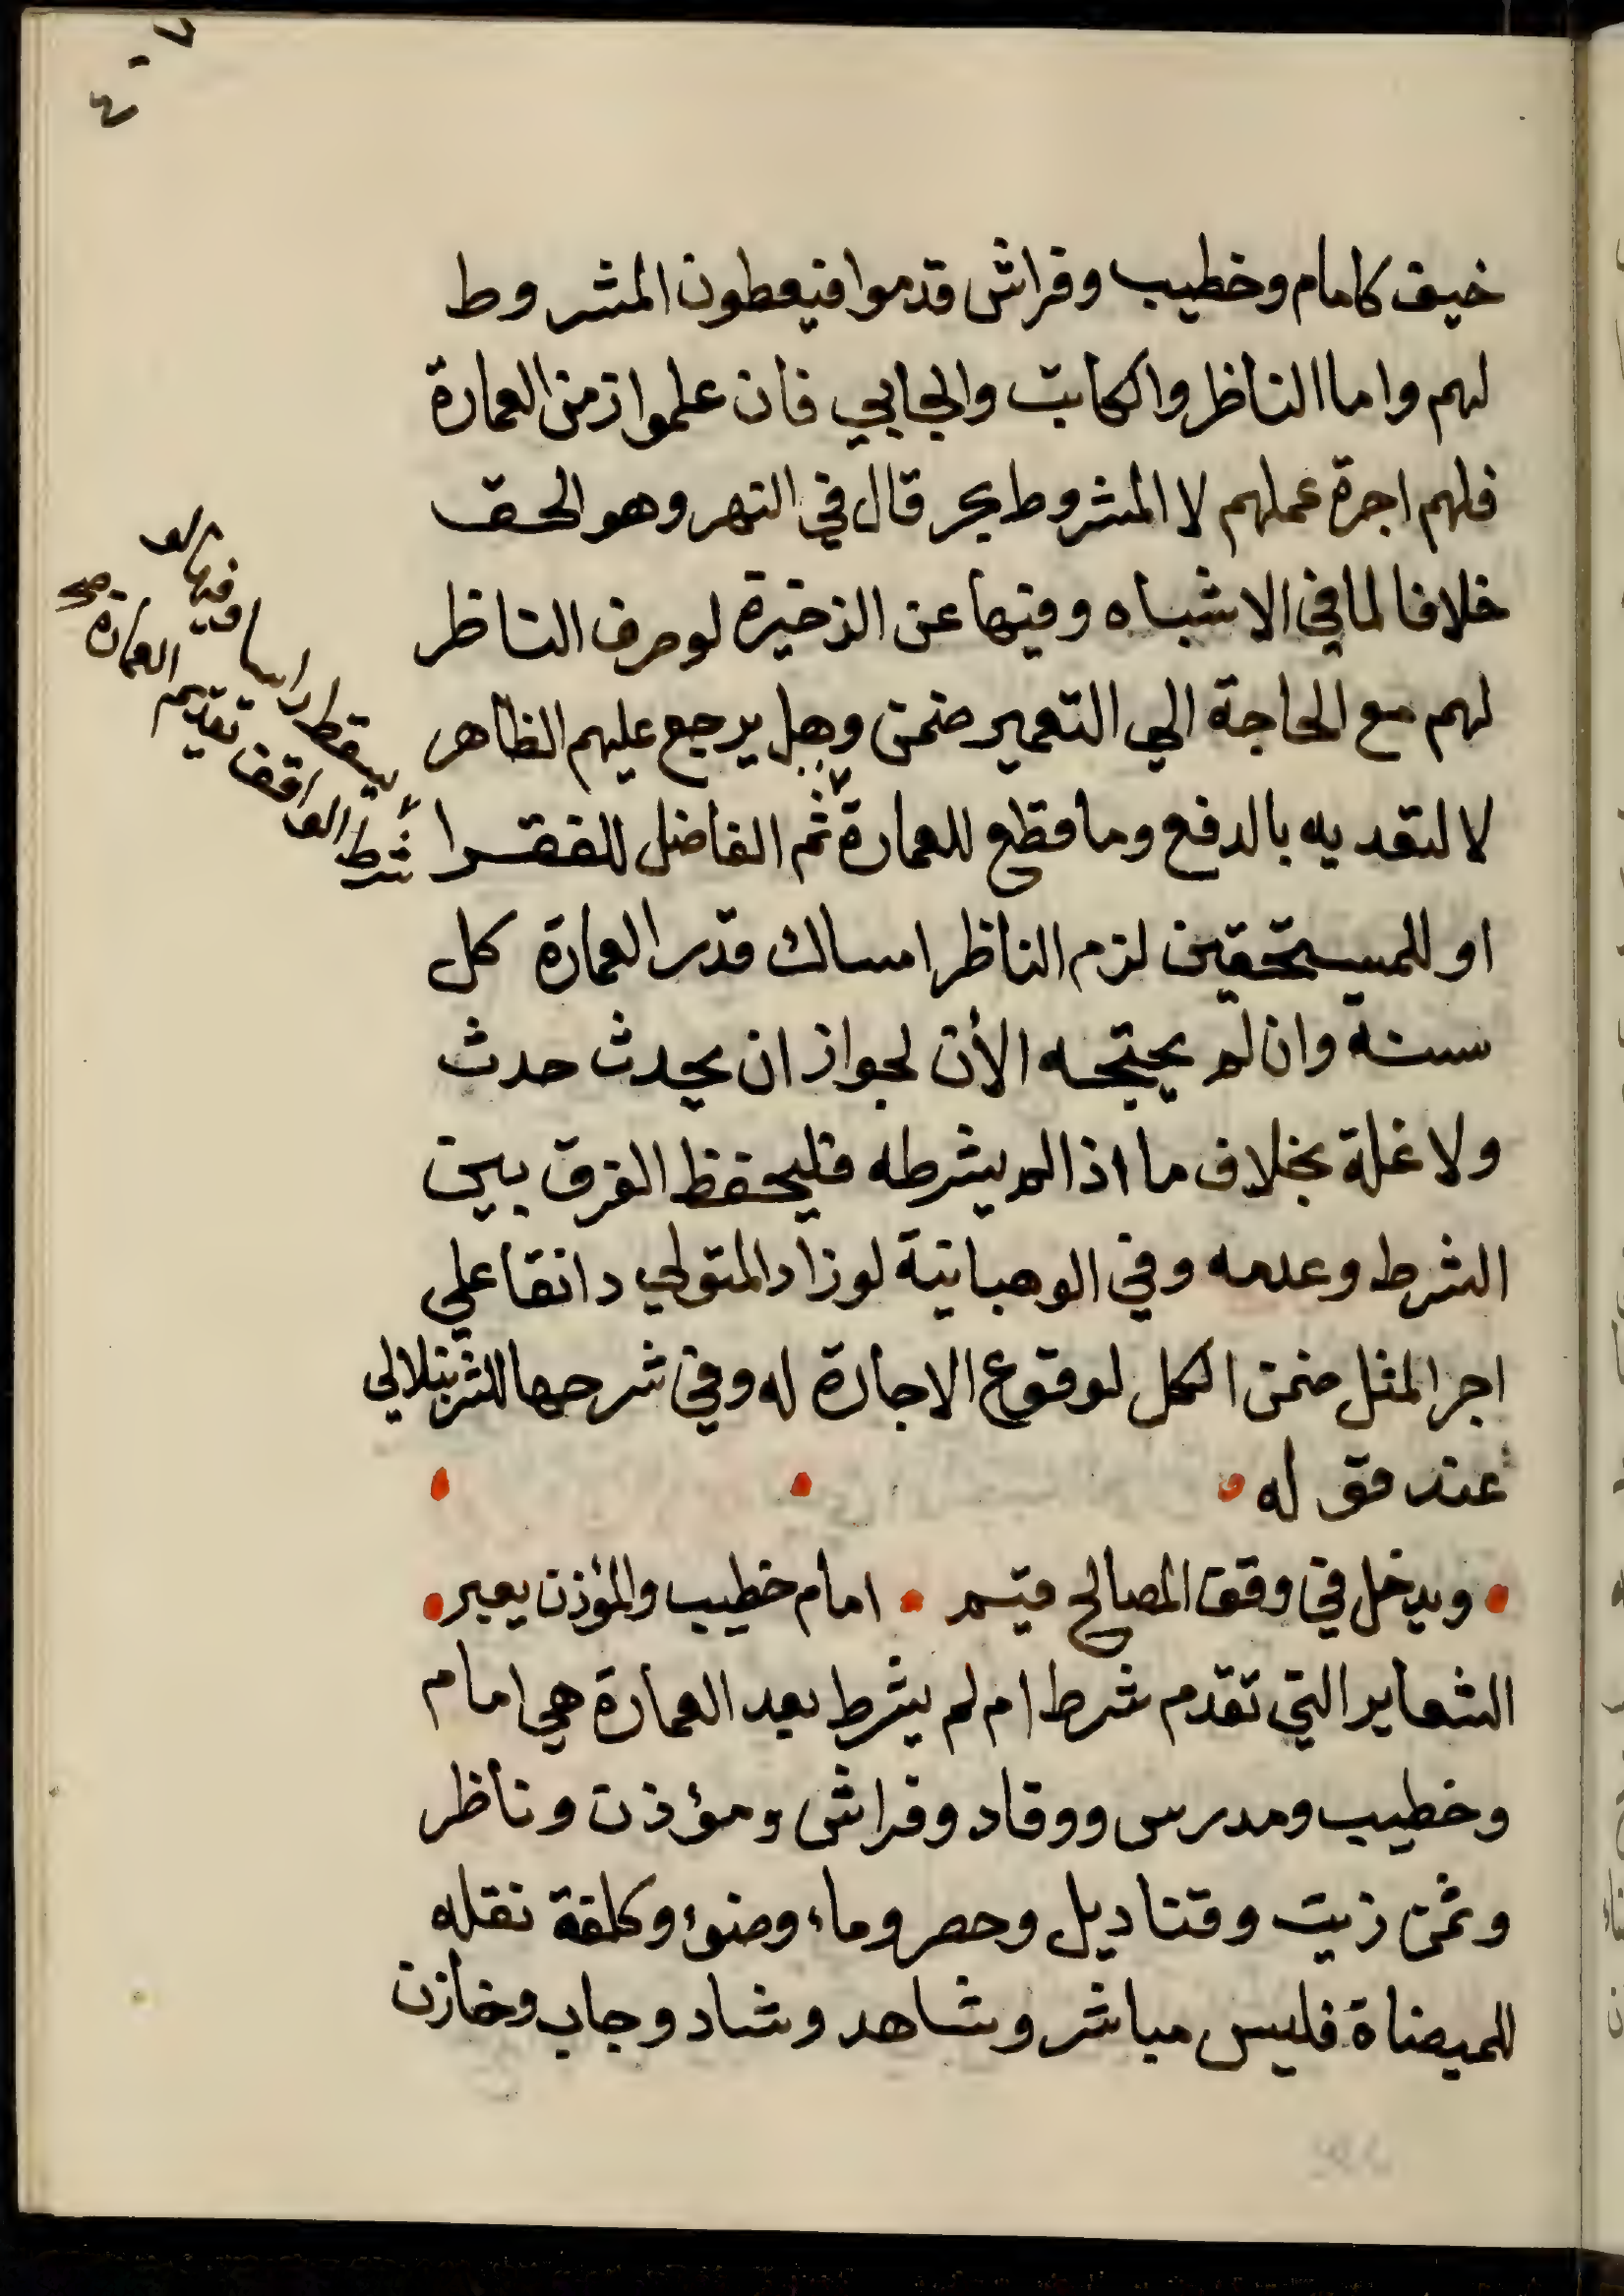 خيف كامام وخطيب وفراش قدموا فيعطون المشروط
لهم واما الناظر والكاتب والجابي فان علموا زمن العمارة
فلهم اجرة عملهم لا المشروط بحر قال في النهر وهو الحق
خلافا لما في الاشباه وفيها عن الذخيرة لو صرف الناظر
لهم مع الحاجة الي التعمير ضمن وهل يرجع عليهم الظاهر
لا لتعديه بالدفع وما قطع للعمارة ثم الفاضل للفقرا
او للمستحقين لزم الناظر امساك قدر العمارة كل
سنة وان لم يحتجه الأن لجواز ان يحدث حدث
ولا غلة بخلاف ما اذا لم يشرطه فليحفظ الفرق بين
الشرط وعدمه وفي الوهبانية لو زاد المتولي دانقا علي
اجر المثل ضمن الكل لوقوع الاجارة له وفي شرحها للشرنبلالي
عند قوله
ويدخل في وقف المصالح قيم امام خطيب والمؤذن يعبر
الشعاير التي تقدم شرط ام لم يشرط بعد العمارة هي امام
وخطيب ومدرس ووقاد وفراش ومؤذن وناظر
وثمن زيت وقناديل وحصر وماء وضوء وكلفة نقله
للميضاة فليس مباشر وشاهد وشاد وجاب وخازن
يسقط راسا وفيها لو
شرط الواقف تقديم العمارة صح